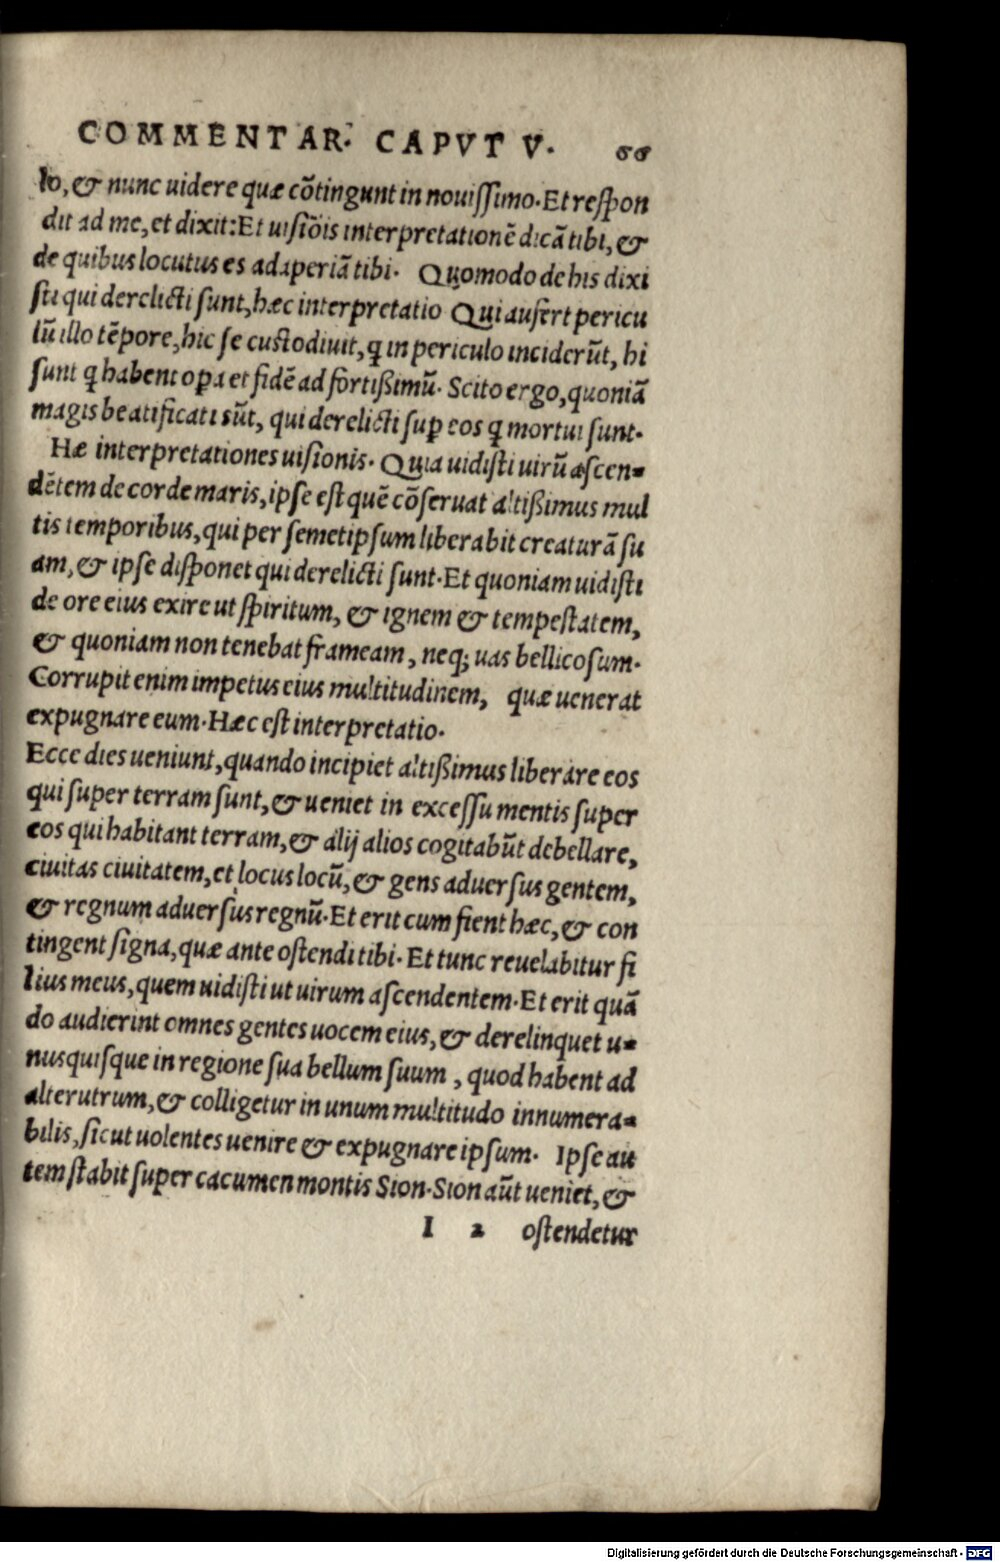 COMMENTAR. CAPVT V. 66
lo, & nunc uidere quæ cõtingunt in nouissimo. Et respon
dit ad me, et dixit: Et uisiõis interpretationẽ dicã tibi, &
de quibus locutus es adaperiã tibi. Quomodo de his dixi
sti qui derelicti sunt, hæc interpretatio Qui aufert pericu
lũ illo tẽpore, hic se custodiuit, q in periculo inciderũt, hi
sunt q habent opa et fidẽ ad fortißimũ. Scito ergo, quoniã
magis beatificati sũt, qui derelicti sup eos q mortui sunt.
Hæ interpretationes uisionis. Quia uidisti uirũ ascen-
dẽtem de corde maris, ipse est quẽ cõseruat altißimus mul
tis temporibus, qui per semetipsum liberabit creaturã su
am, & ipse disponet qui derelicti sunt. Et quoniam uidisti
de ore eius exire ut spiritum, & ignem & tempestatem,
& quoniam non tenebat frameam, neq; uas bellicosum.
Corrupit enim impetus eius multitudinem, quæ uenerat
expugnare eum. Hæc est interpretatio.
Ecce dies ueniunt, quando incipiet altißimus liberare eos
qui super terram sunt, & ueniet in excessu mentis super
eos qui habitant terram, & alij alios cogitabũt debellare,
ciuitas ciuitatem, et locus locũ, & gens aduersus gentem,
& regnum aduersus regnũ. Et erit cum fient hæc, & con
tingent signa, quæ ante ostendi tibi. Et tunc reuelabitur fi
lius meus, quem uidisti ut uirum ascendentem. Et erit quã
do audierint omnes gentes uocem eius, & derelinquet u-
nusquisque in regione sua bellum suum, quod habent ad
alterutrum, & colligetur in unum multitudo innumera-
bilis, sicut uolentes uenire & expugnare ipsum. Ipse au
tem stabit super cacumen montis Sion. Sion aũt ueniet, &
I 2 ostendetur
Digitalisierung gefördert durch die Deutsche Forschungsgemeinschaft - DFG